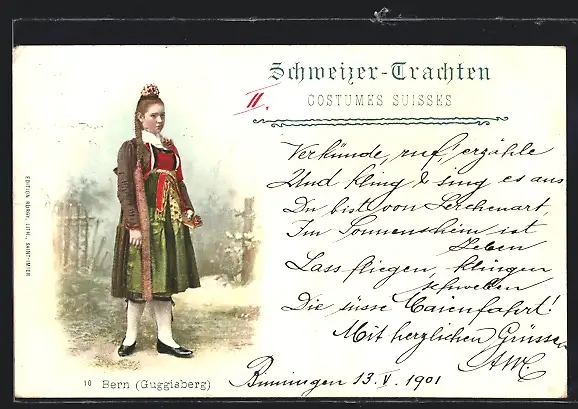 Schweizer-Trachten
II.
COSTUMES SUISSES
Verkünde, ruf', erzähle
Und kling & sing es aus
Du bist von Lerchenart,
Im Sonnenschein ist
Leben
Lass fliegen, klingen
schwellen
Die süsse Maienfahrt!
Mit herzlichen Grüssen
Binningen 13. V. 1901
EDITION BÜRGY, LITH., SAINT-IMIER
10 Bern (Guggisberg)